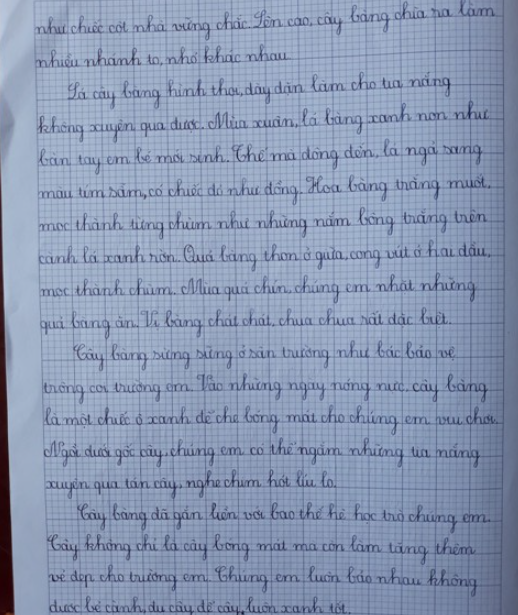 như chiếc cột nhà vững chắc. Lên cao, cây bàng chia ra làm
nhiều nhánh to, nhỏ khác nhau.
Lá cây bàng hình thoi, dày dặn làm cho tia nắng
không xuyên qua được. Mùa xuân, lá bàng xanh non như
bàn tay em bé mới sinh. Thế mà đông đến, lá ngả sang
màu tím sẫm, có chiếc đỏ như đồng. Hoa bàng trắng muốt,
mọc thành từng chùm như những nắm bông trắng trên
cành lá xanh non. Quả bàng thon ở giữa, cong vút ở hai đầu,
mọc thành chùm. Mùa quả chín, chúng em nhặt những
quả bàng ăn. Vị bàng chát chát, chua chua rất đặc biệt.
Cây bàng sừng sững ở sân trường như bác bảo vệ
trông coi trường em. Vào những ngày nóng nực, cây bàng
là một chiếc ô xanh để che bóng mát cho chúng em vui chơi.
Ngồi dưới gốc cây, chúng em có thể ngắm những tia nắng
xuyên qua tán cây, nghe chim hót líu lo.
Cây bàng đã gắn liền với bao thế hệ học trò chúng em.
Cây không chỉ là cây bóng mát mà còn làm tăng thêm
vẻ đẹp cho trường em. Chúng em luôn bảo nhau không
được bẻ cành, đu cây để cây luôn xanh tốt.